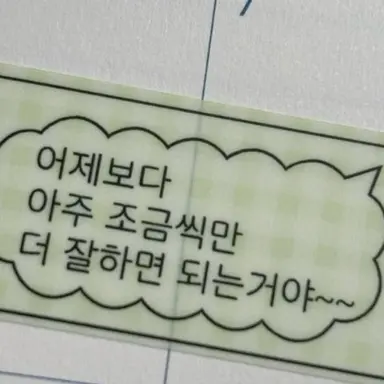 어제보다
아주 조금씩만
더 잘하면 되는거야~~